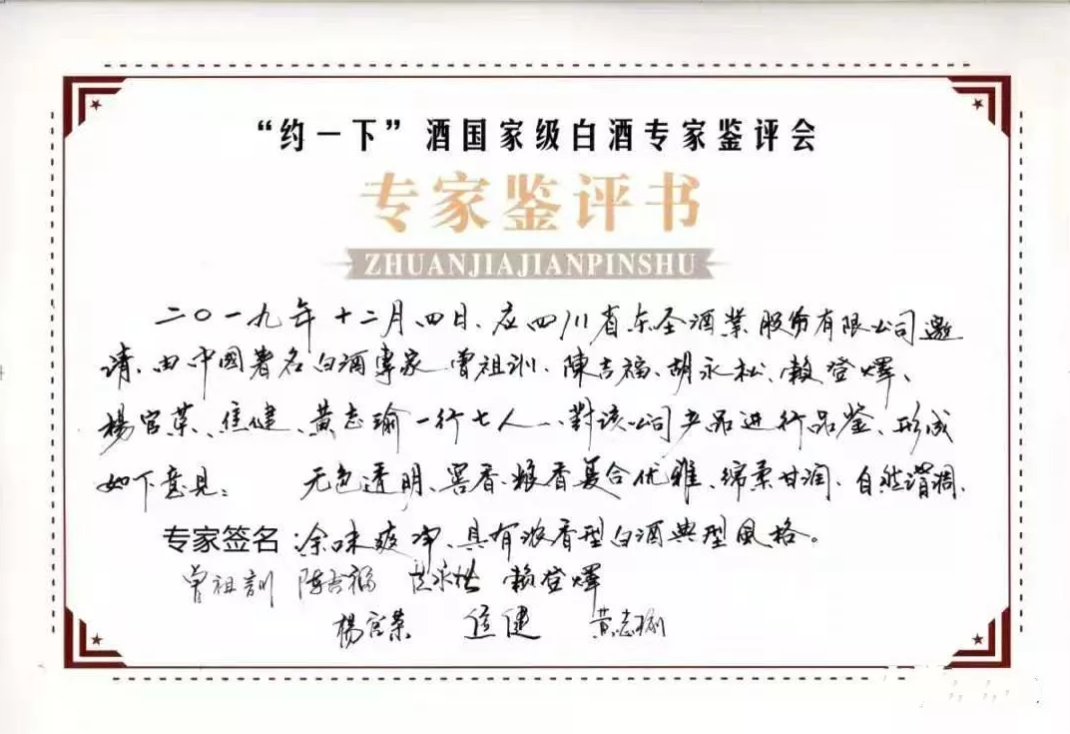 “约一下”酒国家级白酒专家鉴评会
专家鉴评书
ZHUANJIAJIANPINSHU
二〇一九年十二月四日、应四川省东圣酒業股份有限公司邀
请、由中國著名白酒專家曾祖训、陳吉福、胡永松、賴登燡、
楊官荣、侄健、黄志瑜一行七人、對该公司产品进行品鉴、形成
如下意見： 无色透明、窖香粮香复合优雅、绵柔甘润、自然谐调、
专家签名：余味爽净、具有浓香型白酒典型風格。
曾祖訓 陈吉福 胡永松 賴登燡
楊官荣 侄健 黄志瑜